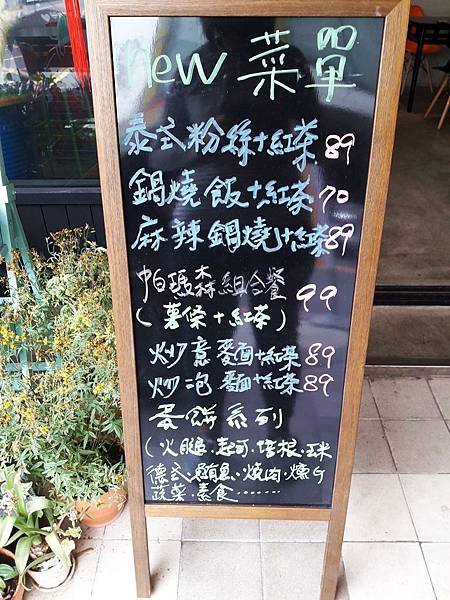 new 菜單
泰式粉絲+紅茶 89
鍋燒飯+紅茶 70
麻辣鍋燒+紅茶 89
帕瑪森組合餐 99
(薯條+紅茶)
炒意麵+紅茶 89
炒泡麵+紅茶 89
蛋餅系列
(火腿.起司.培根.玉米
德式.鮪魚.燒肉.燻G
蔬菜.素食.......